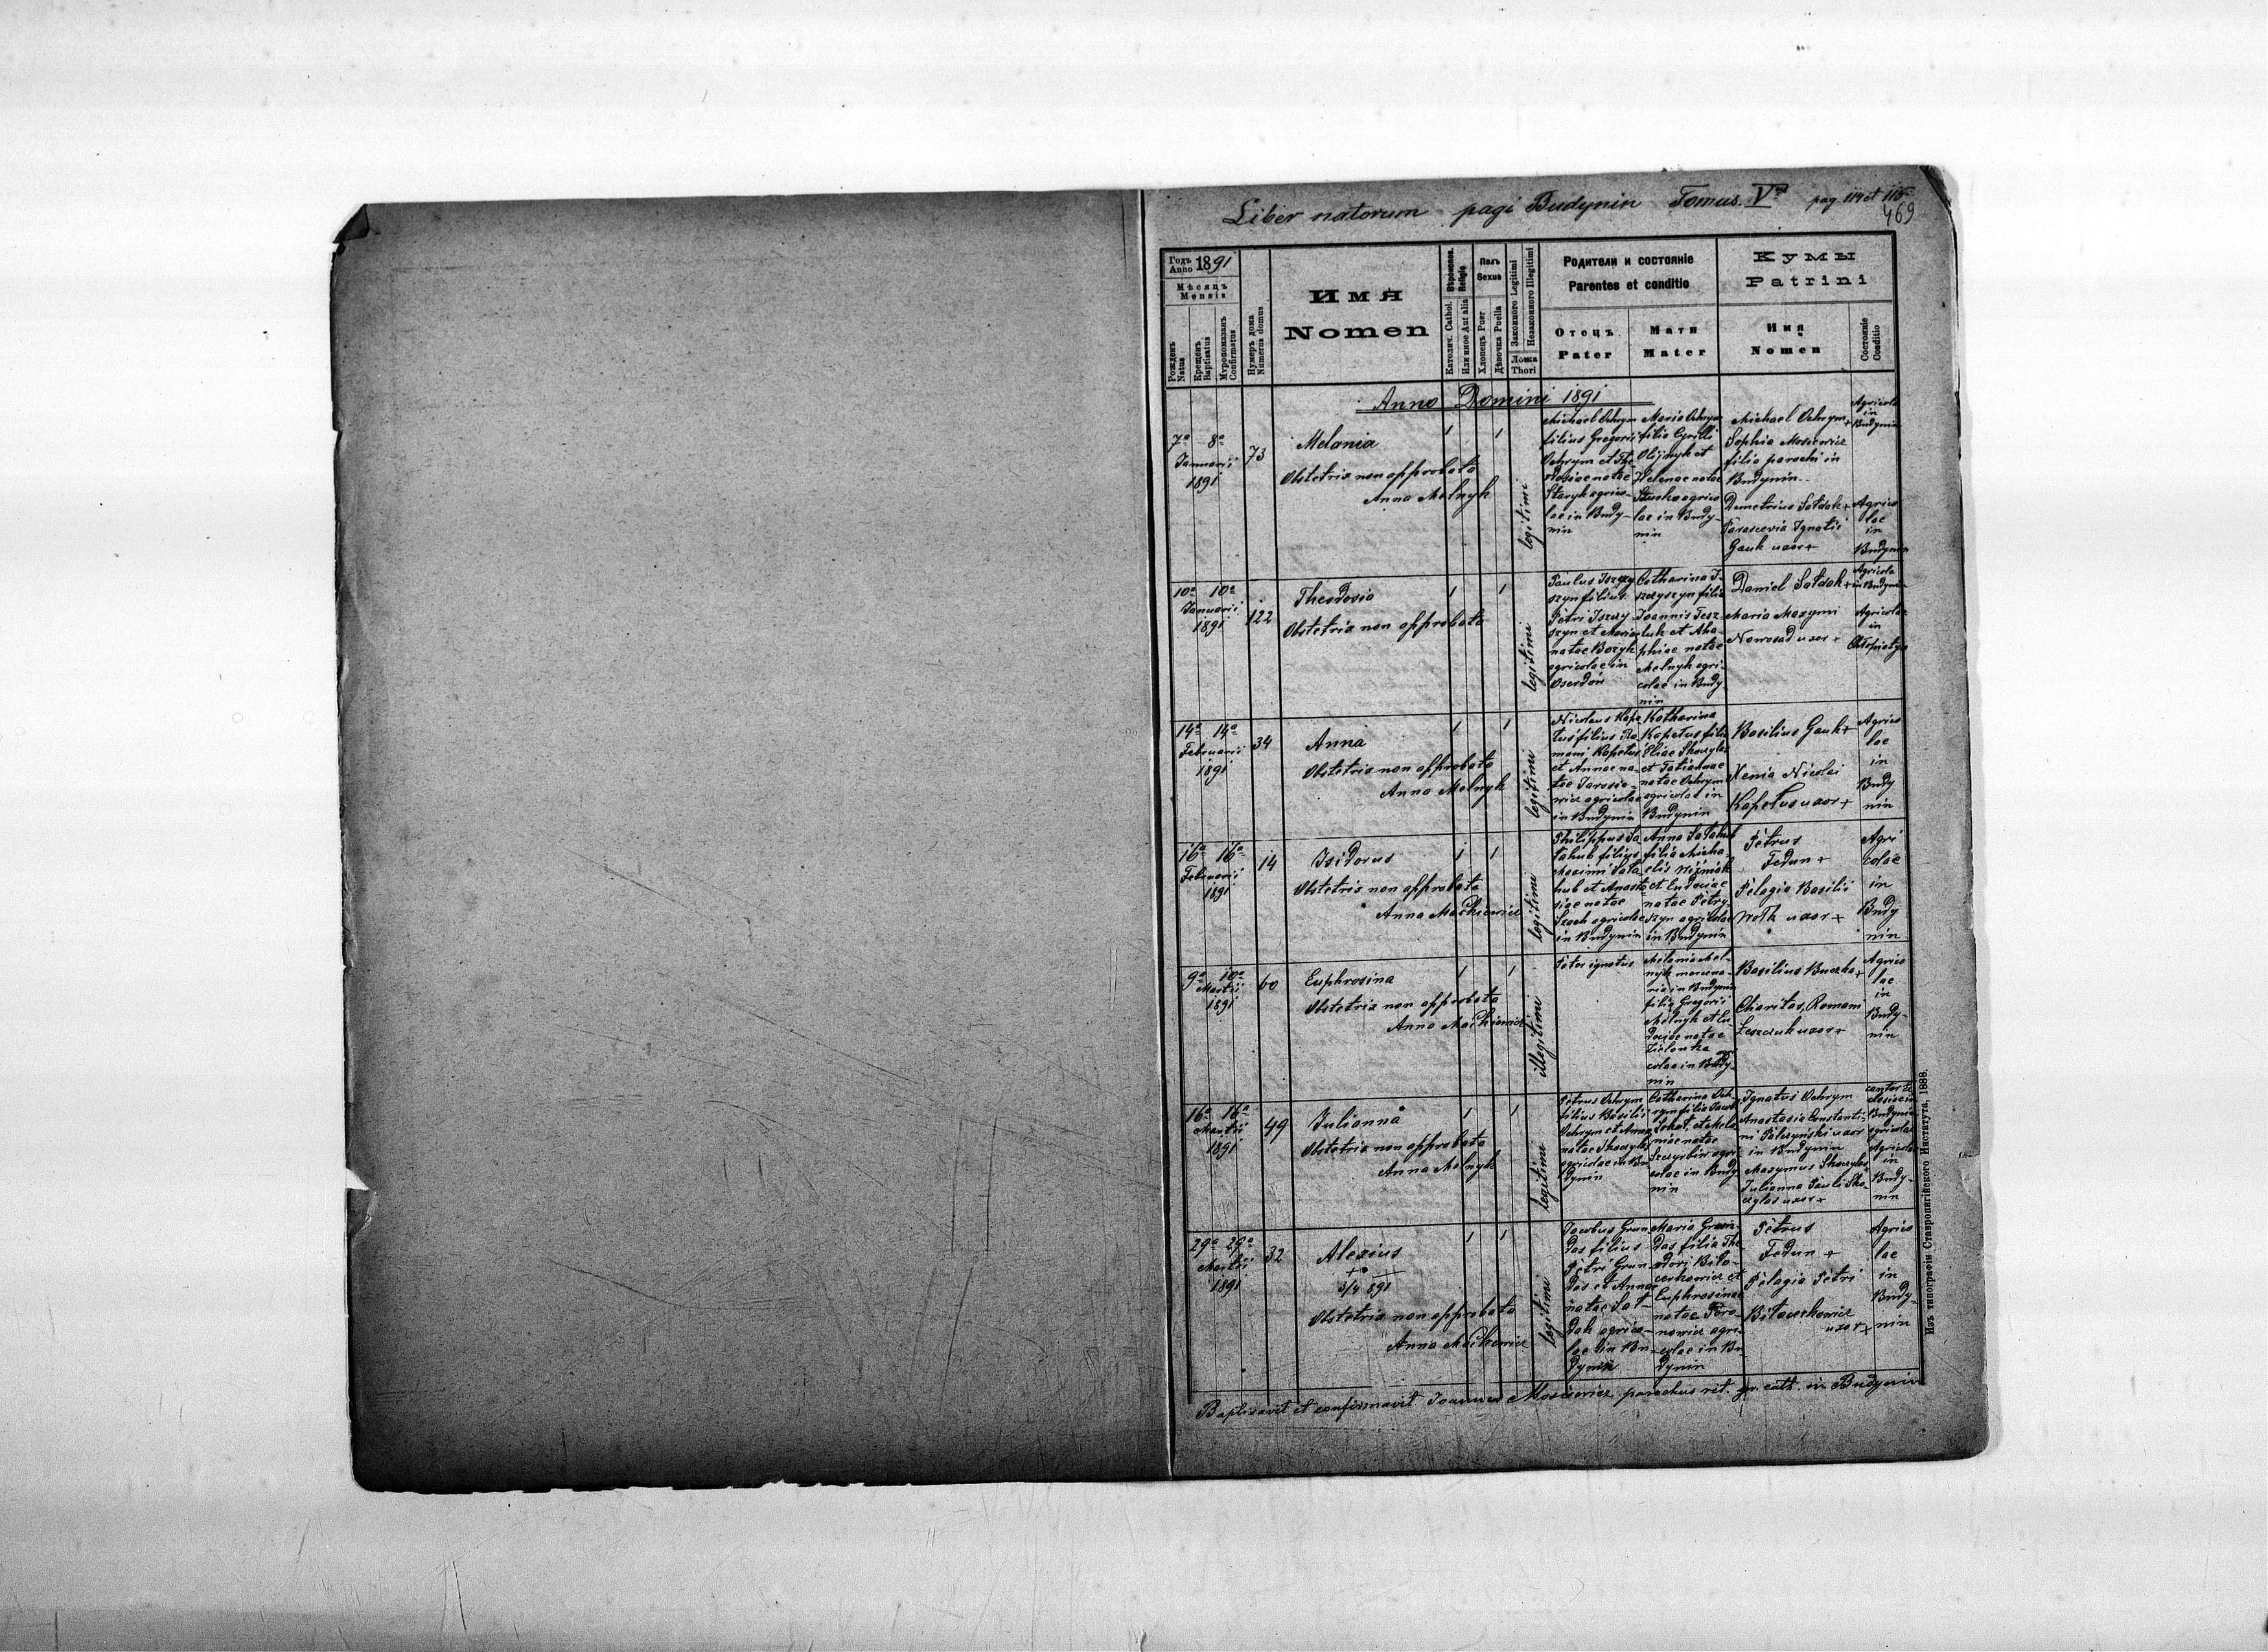 Liber natorum pagi Budynin Tomus V pag. 114 et 115
469
Годъ
Anno 1891
Мѣсяцъ
Mensis
Рожденъ
Natus
Крещенъ
Baptisatus
Мѵропомазанъ
Confirmatus
Нумеръ дома
Numerus domus
Имя
Nomen
Вѣроиспов.
Religio
Католич. Cathol.
Или иное Aut alia
Полъ
Sexus
Хлопецъ Puer
Дѣвочка Puella
Законного Legitimi
Незаконного Illegitimi
Ложа
Thori
Родители и состояніе
Parentes et conditio
Отецъ
Pater
Мати
Mater
Кумы
Patrini
Имя
Nomen
Состояніе
Conditio
Anno Domini 1891
7a 8a
Januarii
1891
73
Melania
Obstetrix non approbata
Anna Melnyk
legitimi
Michael Ochrym
filius Gregorii
Ochrym et
natae
Staryk agrico-
lae in Budy-
nin
Maria Ochrym
filia Cyrilli
Olijnyk et
Helenae natae
agrico-
lae in Budy-
nin
Michael Ochrym
Sophia Mosiewicz
filia parochi in
Budynin
Demetrius Sołdak +
Parascevia Ignatii
Gauk uxor +
Agricola
in
Budynin
Agrico
lae
in
Budynin
10a 10a
Januarii
1891
122
Theodosia
Obstetrix non approbata
legitimi
Paulus Iszczy
szyn filius
Petri Iszczy
szyn et Mariae
natae Bozyk
agricolae in
Oserdów
Catharina I-
szczyszyn filia
Joannis Tesz
luk et Aha-
phiae natae
Melnyk agri-
colae in Budy
nin
Daniel Sołdak +
Maria Maxymi
Nowosad uxor +
Agricola
in Budynin
Agricolae
in
14a 14a
Februarii
1891
34
Anna
Obstetrix non approbata
Anna Melnyk
legitimi
Nicolaus Kape
tus filius Ro
mani Kapetus
et Annae na-
tae Jarosie-
wicz agricolae
in Budynin
Katharina
Kapetus filia
Eliae Skoczylas
et Tatiannae
natae Ochrym
agricolae in
Budynin
Basilius Gauk +
Xenia Nicolai
Kapetus uxor +
Agrico
lae
in
Budy
nin
16a 16a
Februarii
1891
14
Isidorus
Obstetrix non approbata
Anna Maćkiewicz
legitimi
Philippus Sa
łahub filius
Maximi Sała
hub et Anasta
siae natae
agricolae
in Budynin
Anna Sałahub
filia Micha
elis Niżnik
et Eudociae
natae Petry-
szyn agricolae
in Budynin
Petrus
Fedun +
Pelagia Basilii
Wołk uxor +
Agri
colae
in
Budy
nin
9a 10a
Martii
1891
60
Euphrosina
Obstetrix non approbata
Anna Maćkiewicz
illegitimi
Pater ignotus
Melania Mel-
nyk mercena-
ria in Budynin
filia Gregorii
Melnyk et Eu-
dociae natae
Zielonka agri
colae in Budy
nin
Basilius Buczka +
Charitas Romani
Leszczuk uxor +
Agrico
lae
in
Budy-
nin
16a 16a
Martii
1891
49
Julianna
Obstetrix non approbata
Anna Melnyk
legitimi
Petrus Ochrym
filius Basilii
Ochrym et Annae
natae Skoczylas
agricolae in Bu
dynin
Catharina Och
rym filia Jacobi
et Mela
niae natae
Szczyrba agri
colae in Budy
nin
Ignatus Ochrym
Anastasia Constanti-
ni Palczyński uxor
in Budynin
Maxymus Skoczylas
Julianna Pauli Sko-
czylas uxor +
cantor Ec
clesiae in
Budynin
agricolae
Agricolae
in
Budy-
nin
29a 29a
Martii
1891
32
Alexius
+
3/4 891
Obstetrix non approbata
Anna Maćkiewicz
legitimi
Jacobus Grun
das filius
Petri Grun
das et Annae
natae Soł-
dak agrico-
lae in Bu-
dynin
Maria Grun-
das filia The-
odori Biło-
cerkowicz et
Euphrosinae
natae Toro-
nowicz agri-
colae in Bu-
dynin
Petrus
Fedun +
Pelagia Petri
Biłocerkowicz
uxor +
Agrico
lae
in
Budy-
nin
Baptisavit et confirmavit Joannes Mosiewicz parochus rit. gr. cath. in Budynin
Изъ типографіи Ставропигійского Института, 1888.